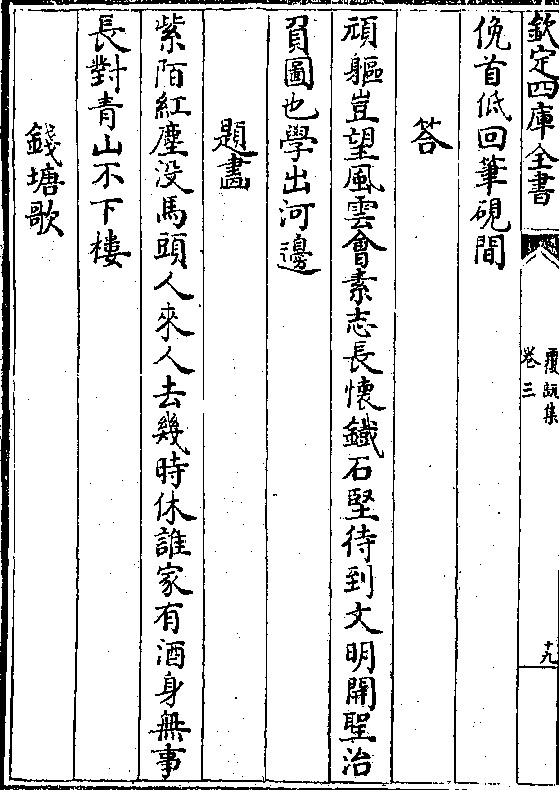 欽定四庫全書
覆瓿集
卷三
十九
俛首低回筆硯間
答
頑軀豈望風雲會素志長懷鐵石堅待到文明開聖治
負圖也學出河邊
題畫
紫陌紅塵没馬頭人來人去幾時休誰家有酒身無事
長對青山不下樓
錢塘歌